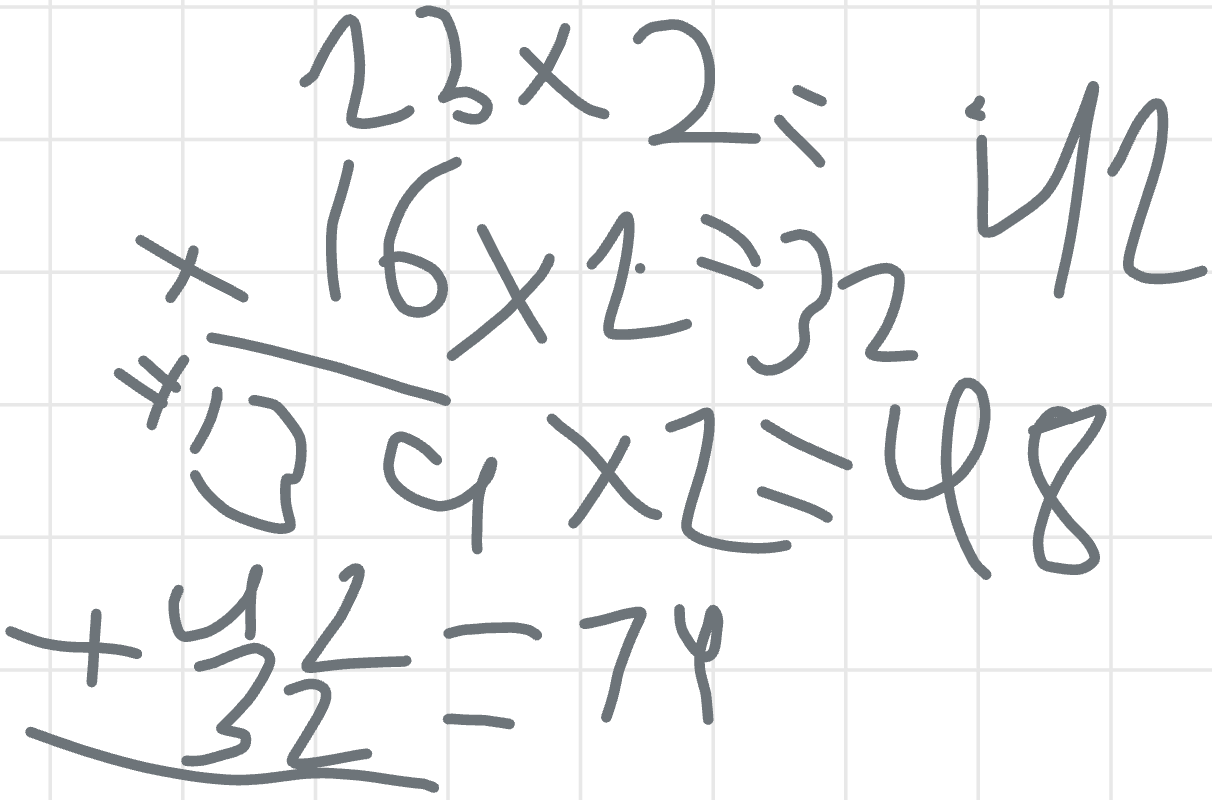 23 × 2 = 42
+ 16 × 2 = 32
= 39 × 2 = 48
+ 42
32 = 74